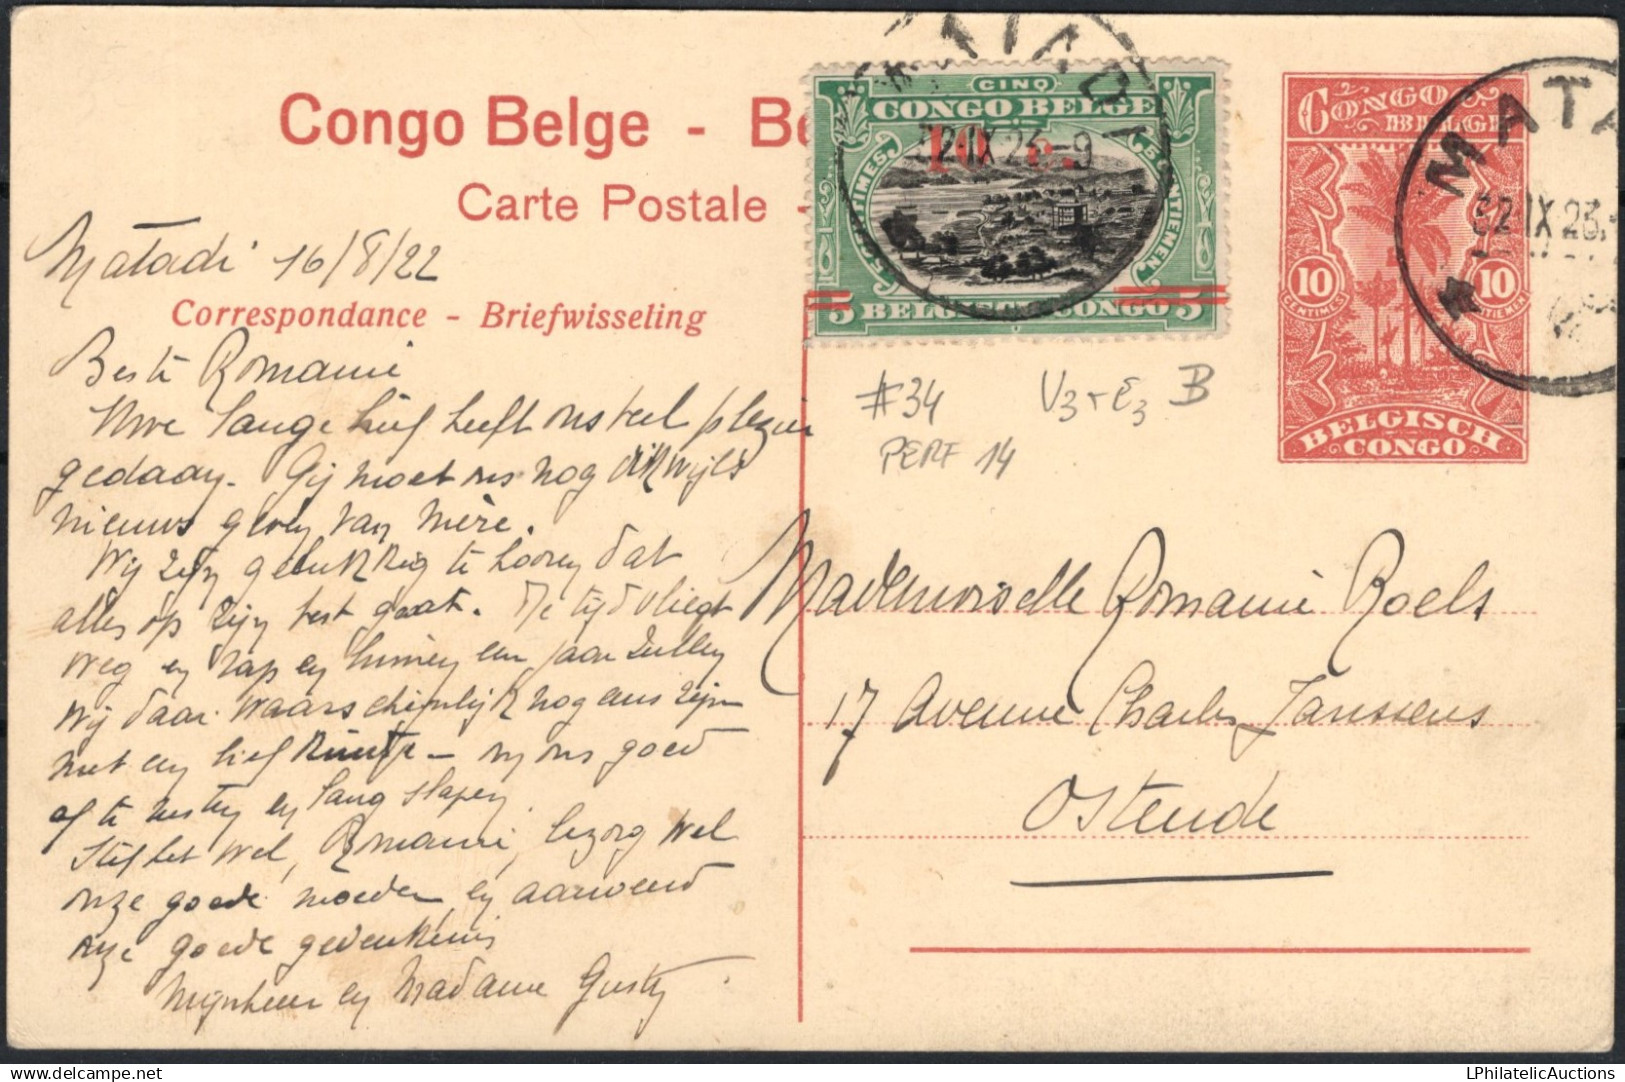 Congo Belge - Be
Carte Postale -
Matadi 16/8/22
Correspondance - Briefwisseling
CINQ
CONGO BELGE
10 c.
22·IX 2 -9
5 CENTIMES
5 CENTIEMEN
5 BELGISCH CONGO 5
MATADI
CONGO BELGE
10 CENTIMES
10 CENTIEMEN
BELGISCH CONGO
MATA
IX 23
#34 V3 + E3 B
PERF 14
Beste Romanie
Uwe lange brief heeft ons veel plezier
gedaan. Gij moet ons nog dikwijls
nieuws geven van mère.
Wij zijn gelukkig te hooren dat
alles op zijn best gaat. De tijd vliegt
weg en rap en binnen een jaar zullen
wij daar waarschijnlijk nog eens zijn
met een lief - ons goed
te rusten en lang slapen.
Stel het wel, Romanie, bezorg wel
onze goede moeder en aanveerd
onze goede gedenkenis
Mijnheer en Madame Gusty
Mademoiselle Romanie Roels
17 Avenue Charles Janssens
Ostende
LPhilatelicAuctions